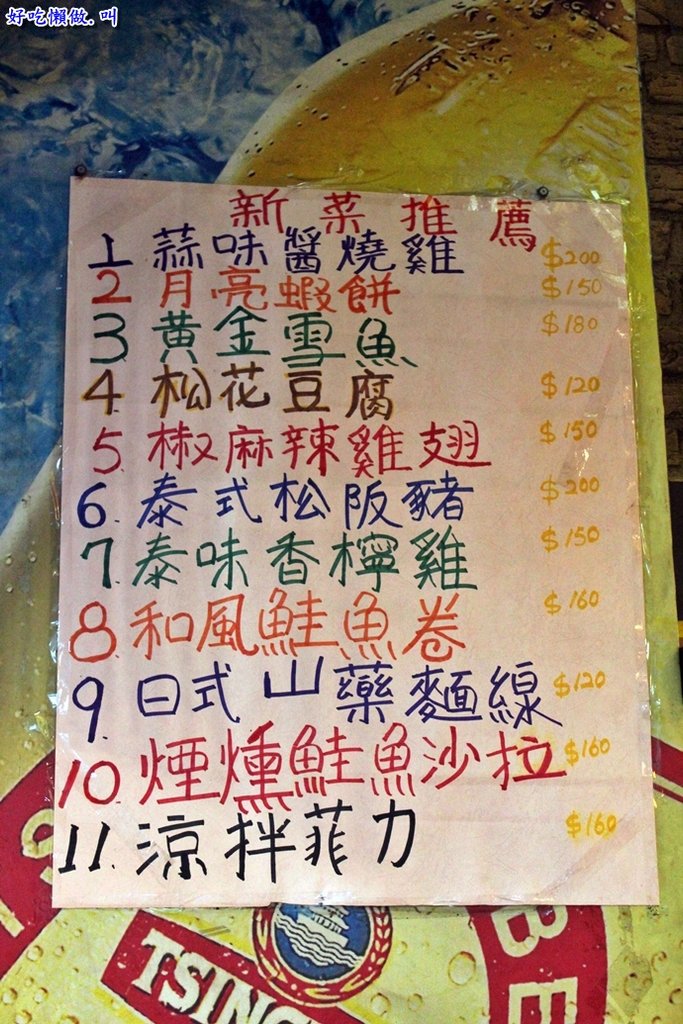 好吃懶做.叫
新菜推薦
1 蒜味醬燒雞 $200
2 月亮蝦餅 $150
3 黃金雪魚 $180
4 松花豆腐 $120
5. 椒麻辣雞翅 $150
6. 泰式松阪豬 $200
7. 泰味香檸雞 $150
8. 和風鮭魚卷 $160
9. 日式山藥麵線 $120
10. 煙燻鮭魚沙拉 $160
11. 涼拌菲力 $160
TSING
BE